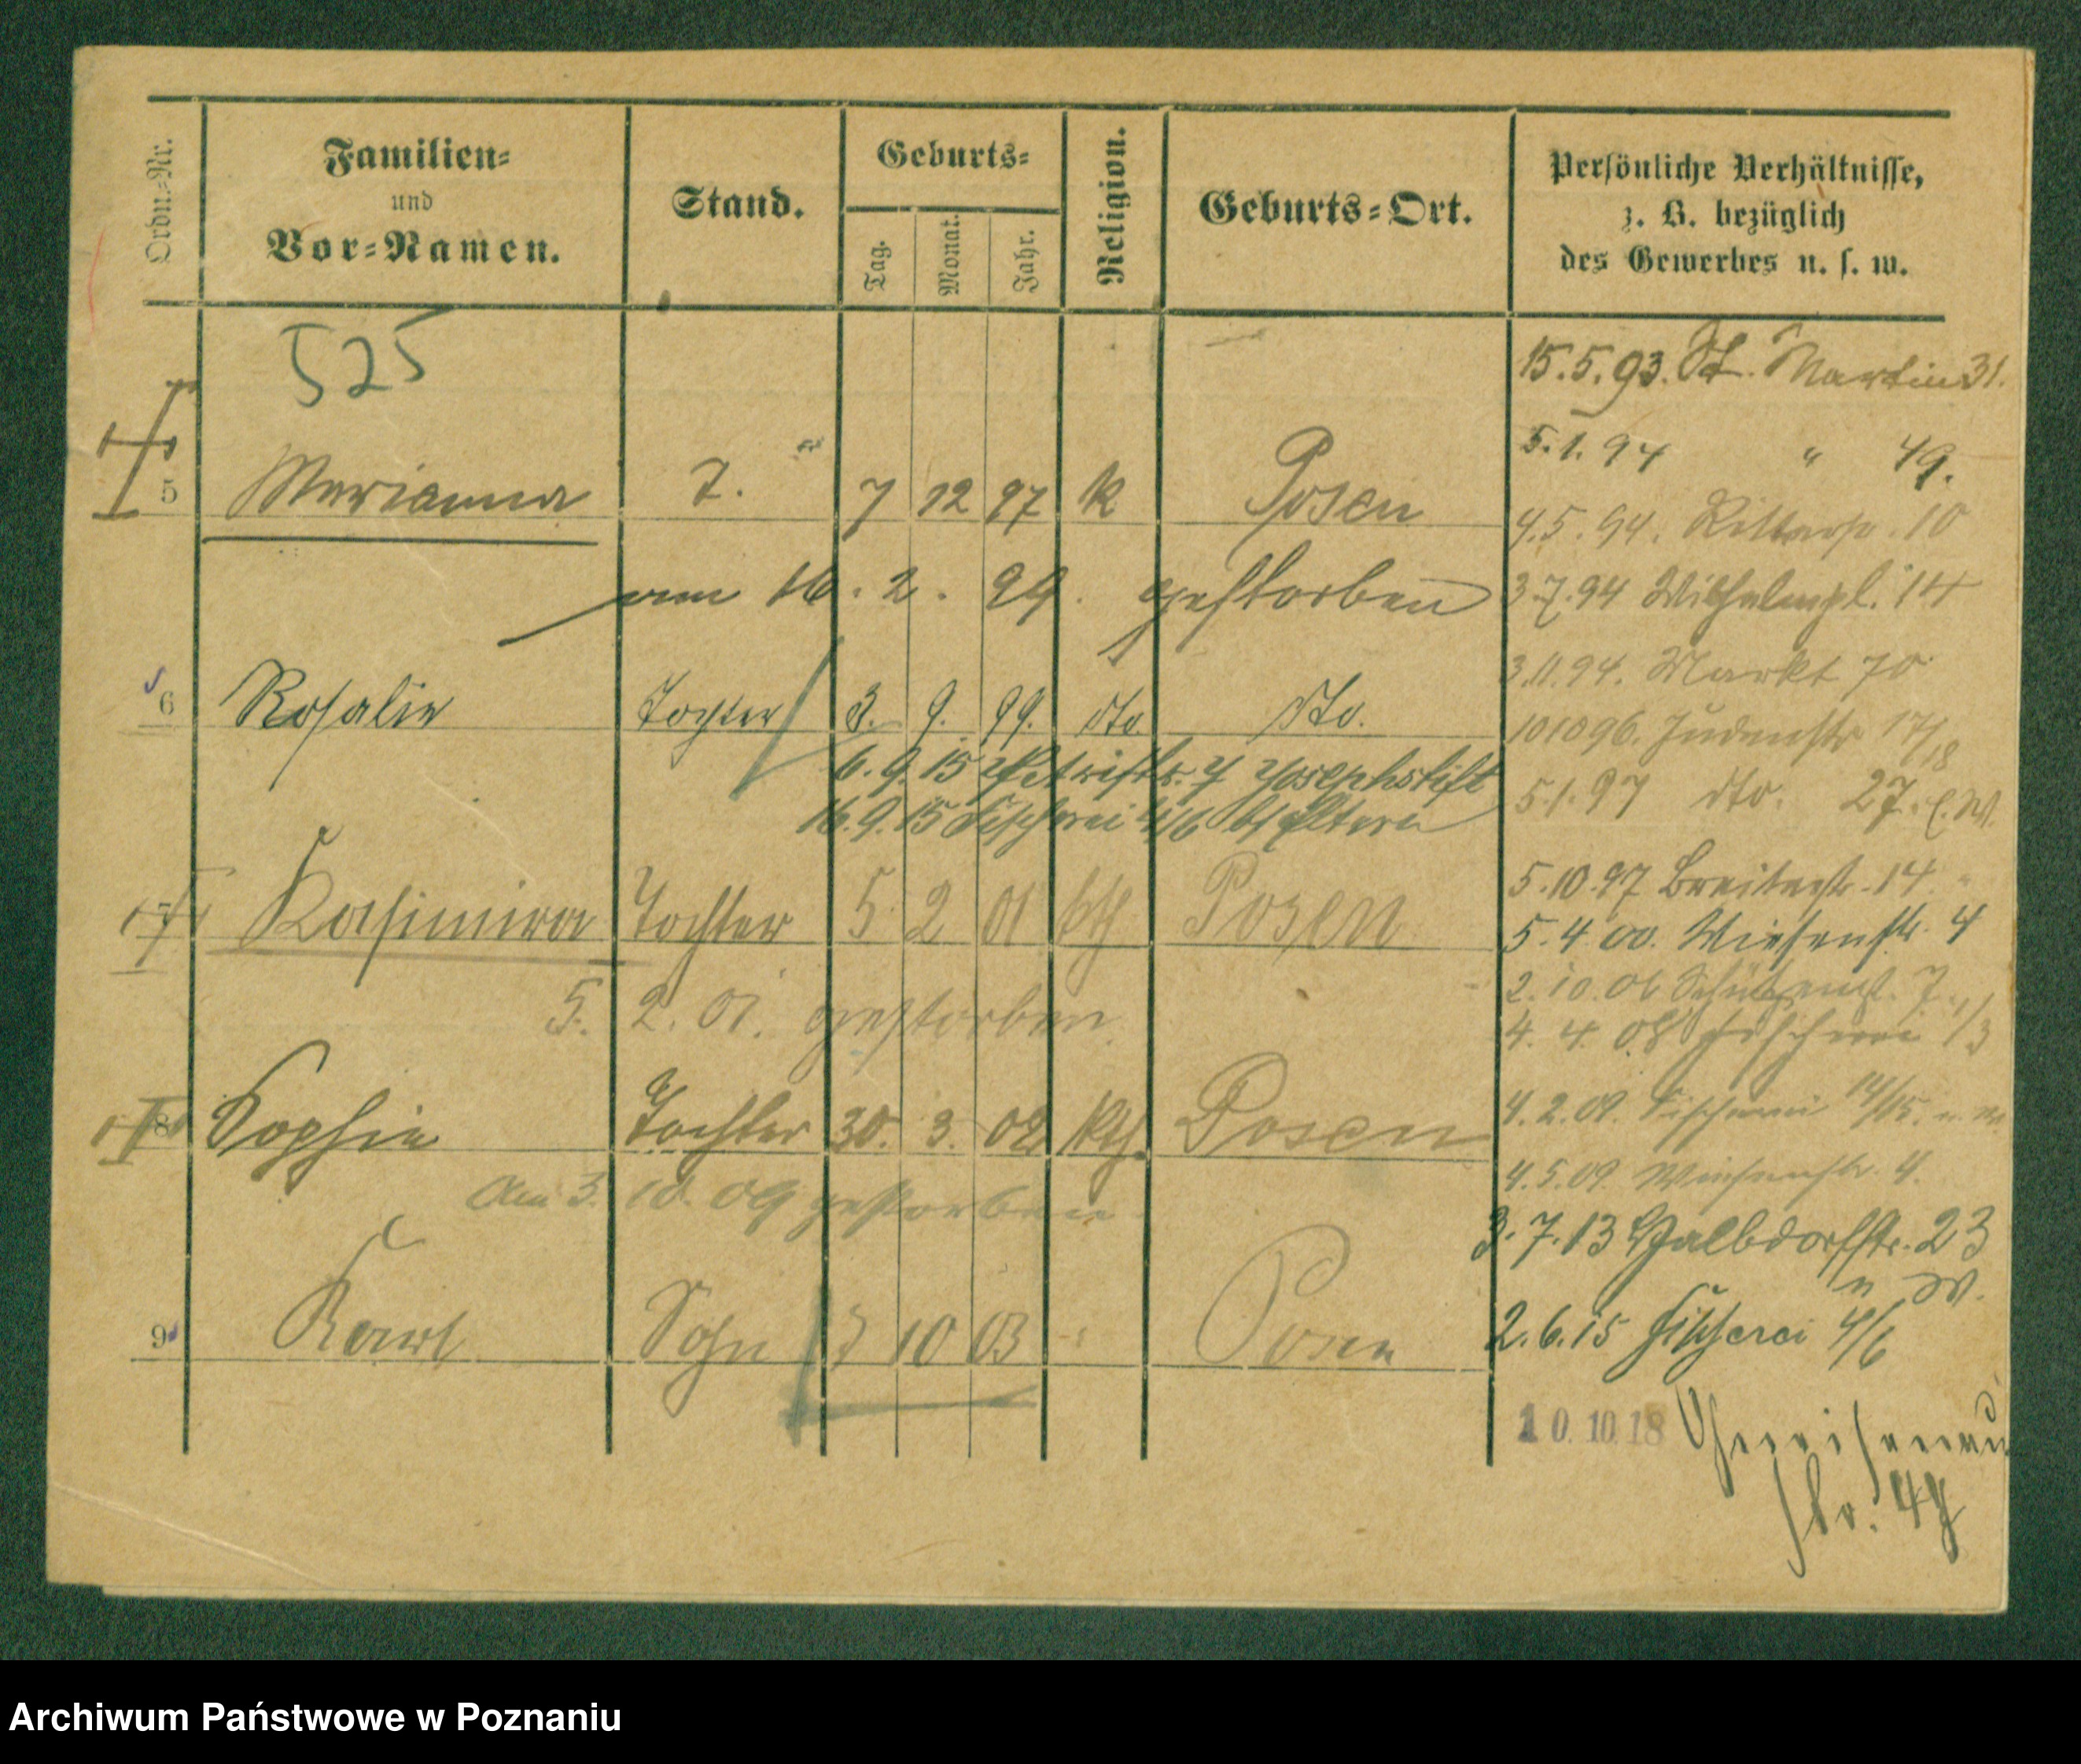 Ordn.-Nr.
Familien-
und
Vor-Namen.
Stand.
Geburts-
Tag.
Monat.
Jahr.
Religion.
Geburts-Ort.
Persönliche Verhältnisse,
z. B. bezüglich
des Gewerbes u. s. w.
525
15.5.93. St. Martin 31.
5.1.94 " 49.
5 Marianna T. 7 12 97 k Posen
4.5.94. Ritterstr. 10
am 16. 2. 99. gestorben
3.7.94 Wilhelmpl. 14
3.11.94. Markt 70
6 Rosalie Tochter 3. 9. 99. dto. dto.
10 10 96. Judenstr 17/18
6.9.15 Petristr. 7 Josephstift
5.1.97 dto. 27.
16.9.15 Fischerei 4/6 b/Eltern
5.10.97 Breitestr. 14
7 Kasimira Tochter 5 2 01 kth Posen
5.4.00. Wiesenstr. 4
2.10.06 Schützenst. 7
5. 2. 01. gestorben.
4. 4. 08 Fischerei 1/3
8 Sophie Tochter 30. 3. 02 kth. Posen
4.2.09. Fischerei 14/15.
4.5.09. Wiesenstr. 4.
Am 3. 10. 09 gestorben
3.7.13 Halbdorfstr. 23
n W.
9 Karl Sohn 3 10 03 Posen
2.6.15 Fischerei 4/6
10.10.18 Gneisenau
str. 4
Archiwum Państwowe w Poznaniu